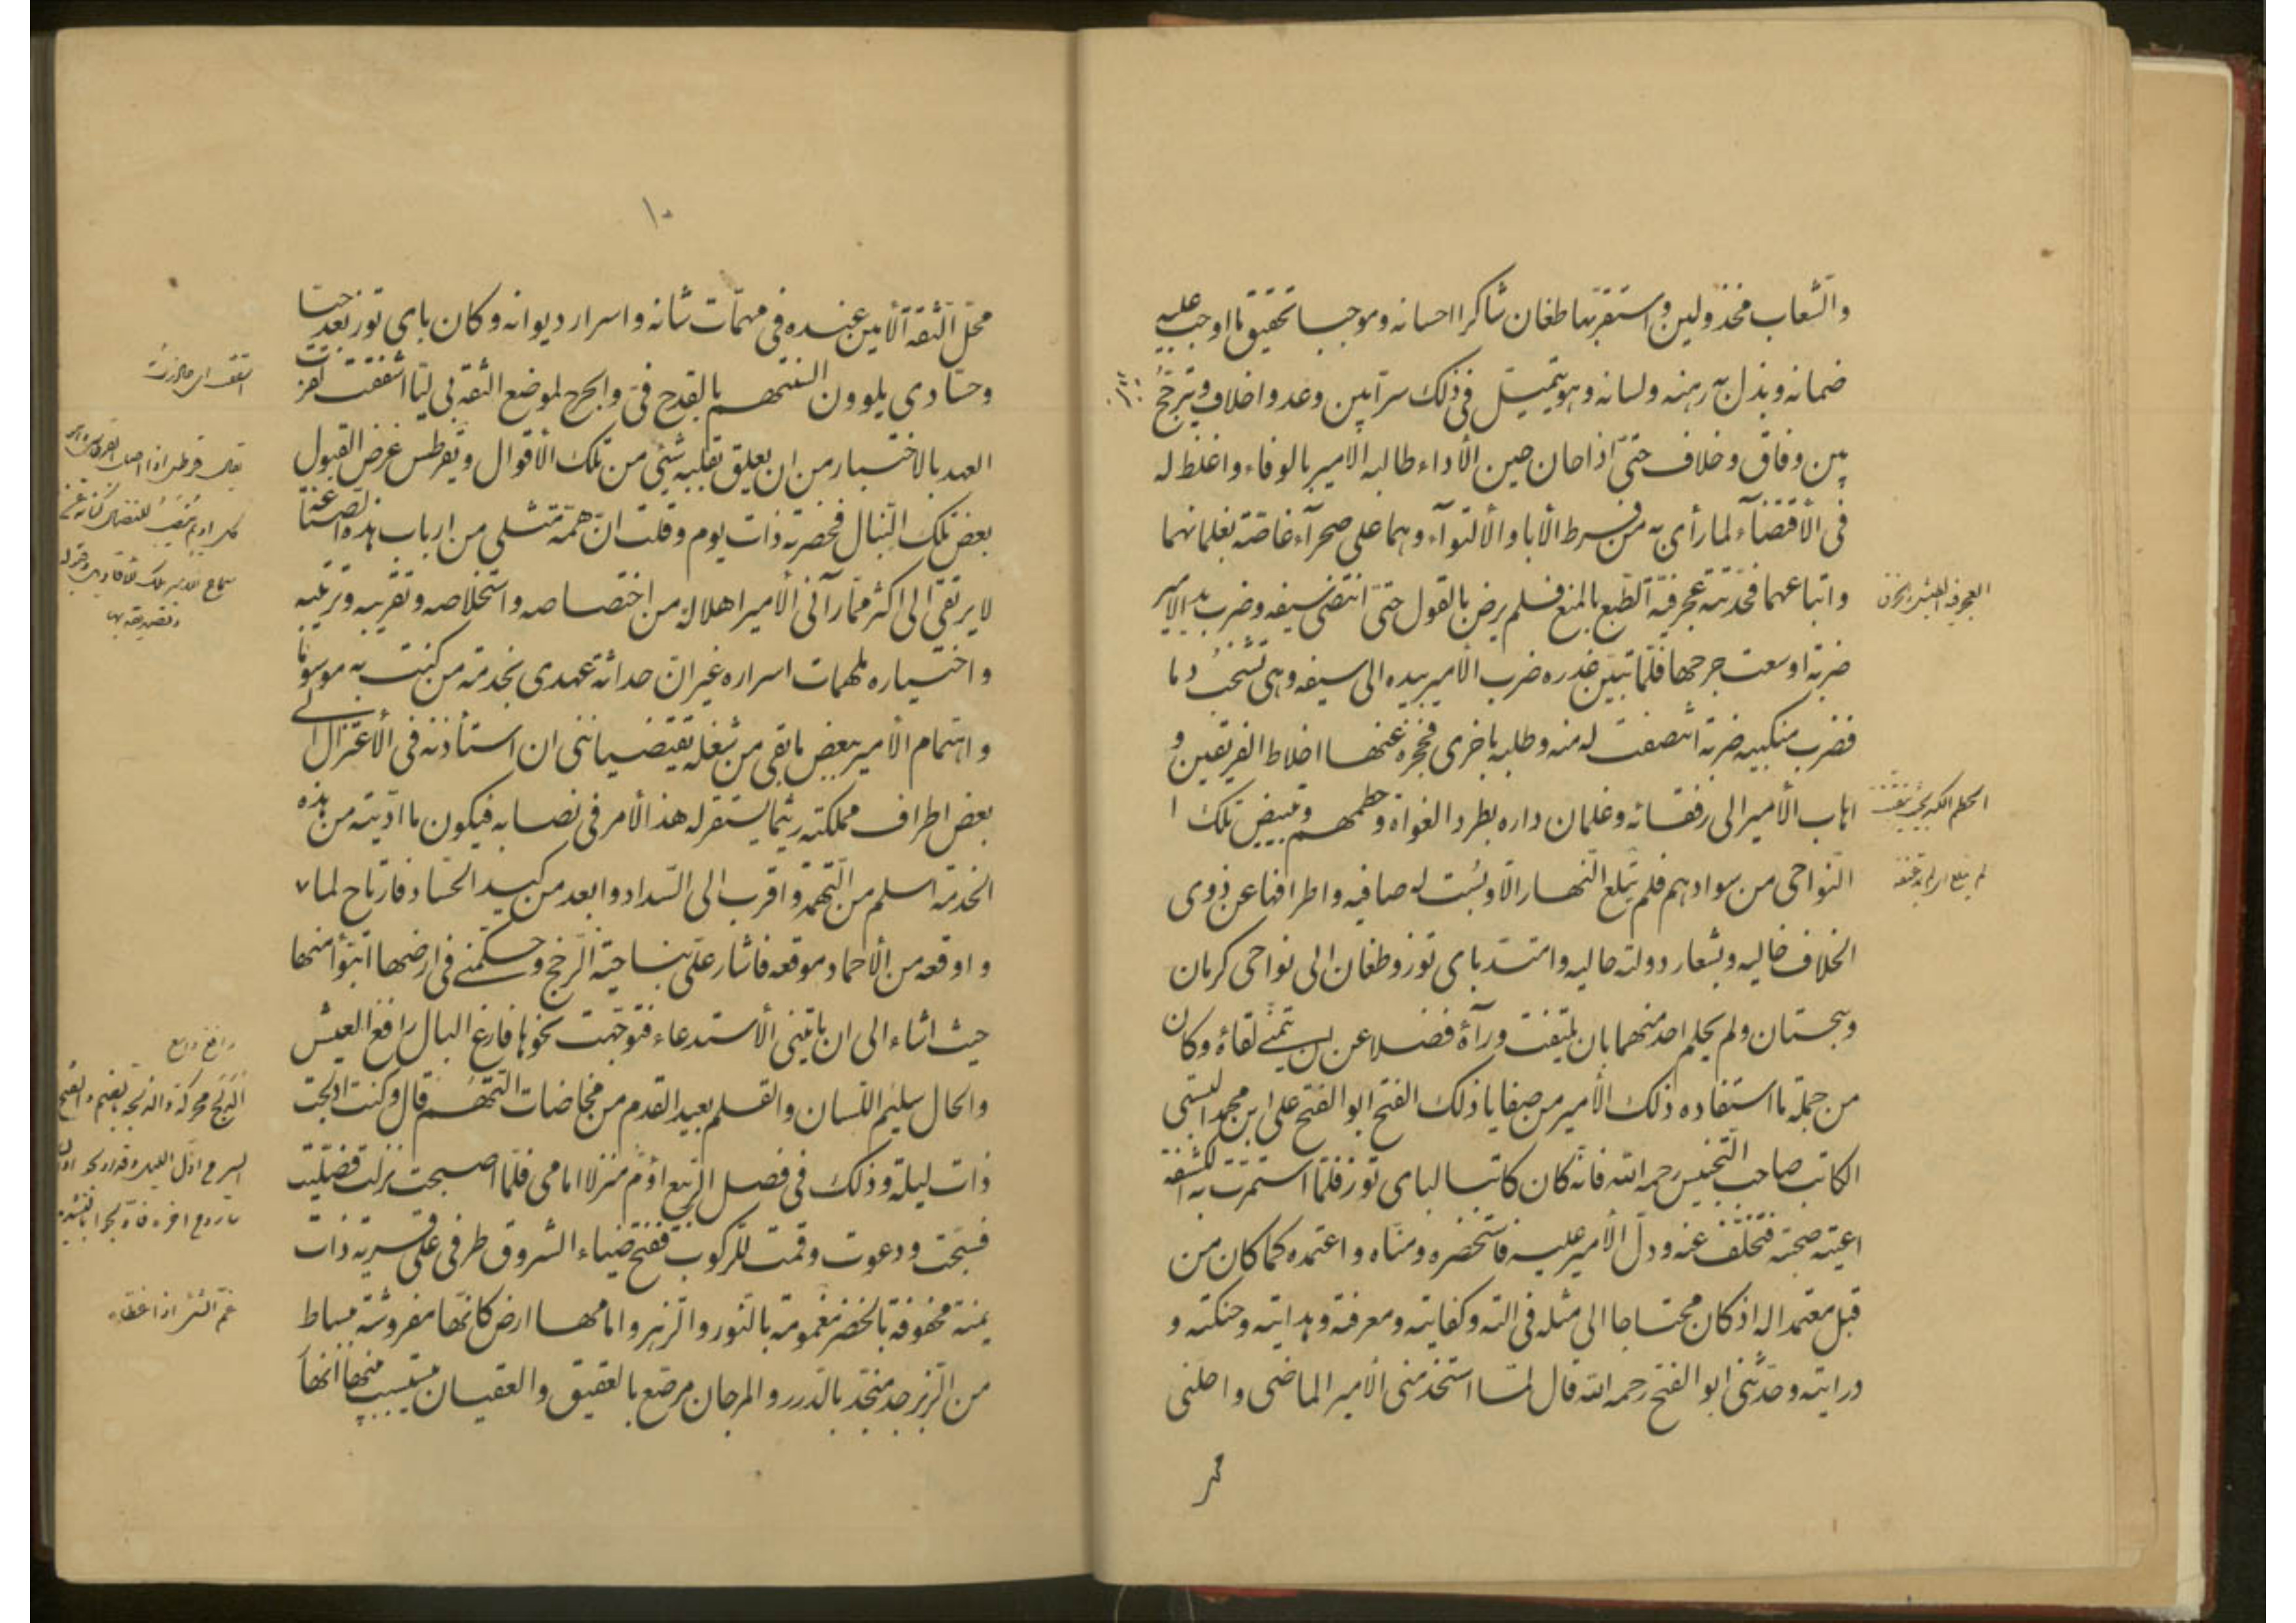 والشعاب مخذولين واستقر بها طغان شاكرا احسانه وموجبا تحقيق ما اوجب عليه
ضمانه وبذل به رهنه ولسانه وهو يتميل في ذلك سرا بين وعد واخلاف ويترجح
بين وفاق وخلاف حتى اذا حان حين الأداء طالبه الأمير بالوفاء واغلظ له
في الأقتضاء لما رأى به من فرط الأباء والألتوآء وهما على صحرآء غاصة بغلمانهما
واتباعهما فحدته عجرفية الطبع بالمنع فلم يرض بالقول حتى انتضى سيفه وضرب يد الامير
ضربة اوسعت جرحها فلما تبين غدره ضرب الأمير بيده الى سيفه وهي تشخب دما
فضرب منكبيه ضربة انتصفت له منه وطلبه باخرى فحجزه عنها اخلاط الفريقين و
اهاب الأمير الى رفقائه وغلمان داره بطرد الغواة وحطمهم وتبييض تلك ا
النواحي من سوادهم فلم يتلع النهار الا وبست له صافيه واطرافها عن ذوى
الخلاف خاليه وبشعار دولته حاليه وامتد باى توز وطغان الى نواحى كرمان
وسجستان ولم يحلم احد منهما بان يلتفت ورآءه فضلا عن ان يتمنى لقاءه وكان
من جملة ما استفاده ذلك الأمير من صفايا ذلك الفتح ابو الفتح على ابن محمد البستى
الكاتب صاحب التجنيس رحمه الله فانه كان كاتبا لباى توز فلما استمرت به الكشفة
اعيته صحبته فتخلف عنه ودل الأمير عليه فاستحضره ومناه واعتمده كما كان من
قبل معتمدا له اذ كان محتاجا الى مثله في آلته وكفايته ومعرفته وهدايته وحنكته و
درايته وحدثنى ابو الفتح رحمه الله قال لما استخدمنى الأمير الماضى واحلنى
العجرفة
الحطم الكسر
محل
١٠
محل الثقة الأمين عنده في مهمات شانه واسرار ديوانه وكان باى توز بعد حيا
وحسادى يلوون السنتهم بالقدح في والجرح لموضع الثقة بى لما اشفقت لقرب
العهد بالاختيار من ان يعلق بقلبه شئ من تلك الأقوال ويقرطس غرض القبول
بعض تلك النبال فحضرته ذات يوم وقلت ان همة مثلى من ارباب هذه الصناعة
لا يرتقى الى اكثر مما رآنى الأمير اهلا له من اختصاصه واستخلاصه وتقريبه وترتيبه
واختياره لمهمات اسراره غير ان حداثة عهدى بخدمة من كنت به موسوما
واهتمام الأمير ببعض ما بقى من شغله يقتضياننى ان استأذنه في الأعتزال الى
بعض اطراف مملكته ريثما يستقر له هذا الأمر في نصابه فيكون ما اديته من هذه
الخدمة اسلم من التهمة واقرب الى السداد وابعد من كيد الحساد فارتاح لما
واوقعه من الأحماد موقعه فاشار على بناحية الرخج وحكمنى في ارضها اتبوأ منها
حيث اشاء الى ان ياتينى الأستدعاء فتوجهت نحوها فارغ البال رافغ العيش
والحال سليم اللسان والقلم بعيد القدم من مخاضات التهم قال وكنت ادلجت
ذات ليلة وذلك في فصل الربيع اؤم منزلا امامى فلما اصبحت نزلت فصليت
فسبحت ودعوت وقمت للركوب ففتح ضياء الشروق طرفى على قرية ذات
يمنة محفوفة بالخضر مغمومة بالنور والزهر وامامها ارض كانها مفروشة ببساط
من الزبرجد منجد بالدرر والمرجان مرصع بالعقيق والعقيان ينسيب منها انها
رافغ واسع
غم الشئ اذا غطاه